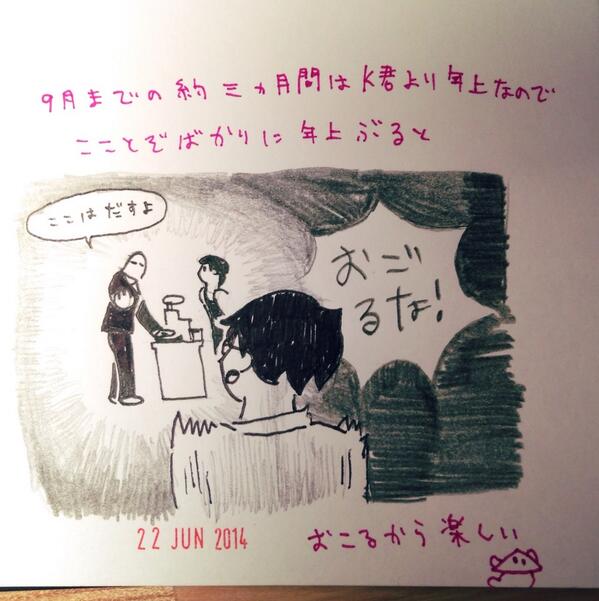 9月までの約三ヵ月間はK君より年上なので
こことぞばかりに年上ぶると
ここはだすよ
おご
るな!
22 JUN 2014
おこるから楽しい